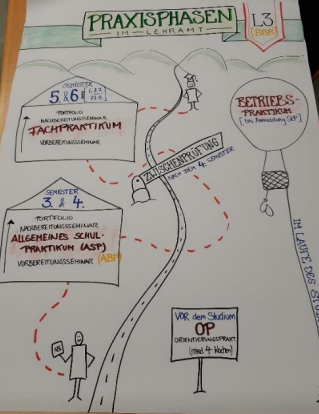 PRAXISPHASEN
IM LEHRAMT
L3
(BBB)
SEMESTER
5. & 6.
PORTFOLIO
NACHBEREITUNGSSEMINAR
FACHPRAKTIKUM
VORBEREITUNGSSEMINAR
BETRIEBS-
PRAKTIKUM
ZWISCHENPRÜFUNG
NACH DEM 4. SEMESTER
SEMESTER
3. & 4.
PORTFOLIO
NACHBEREITUNGSSEMINAR
ALLGEMEINES SCHUL-
PRAKTIKUM (ASP)
VORBEREITUNGSSEMINAR
IM LAUFE DES
VOR dem Studium
OP
ORIENTIERUNGSPRAKT.
(mind. 4 Wochen)